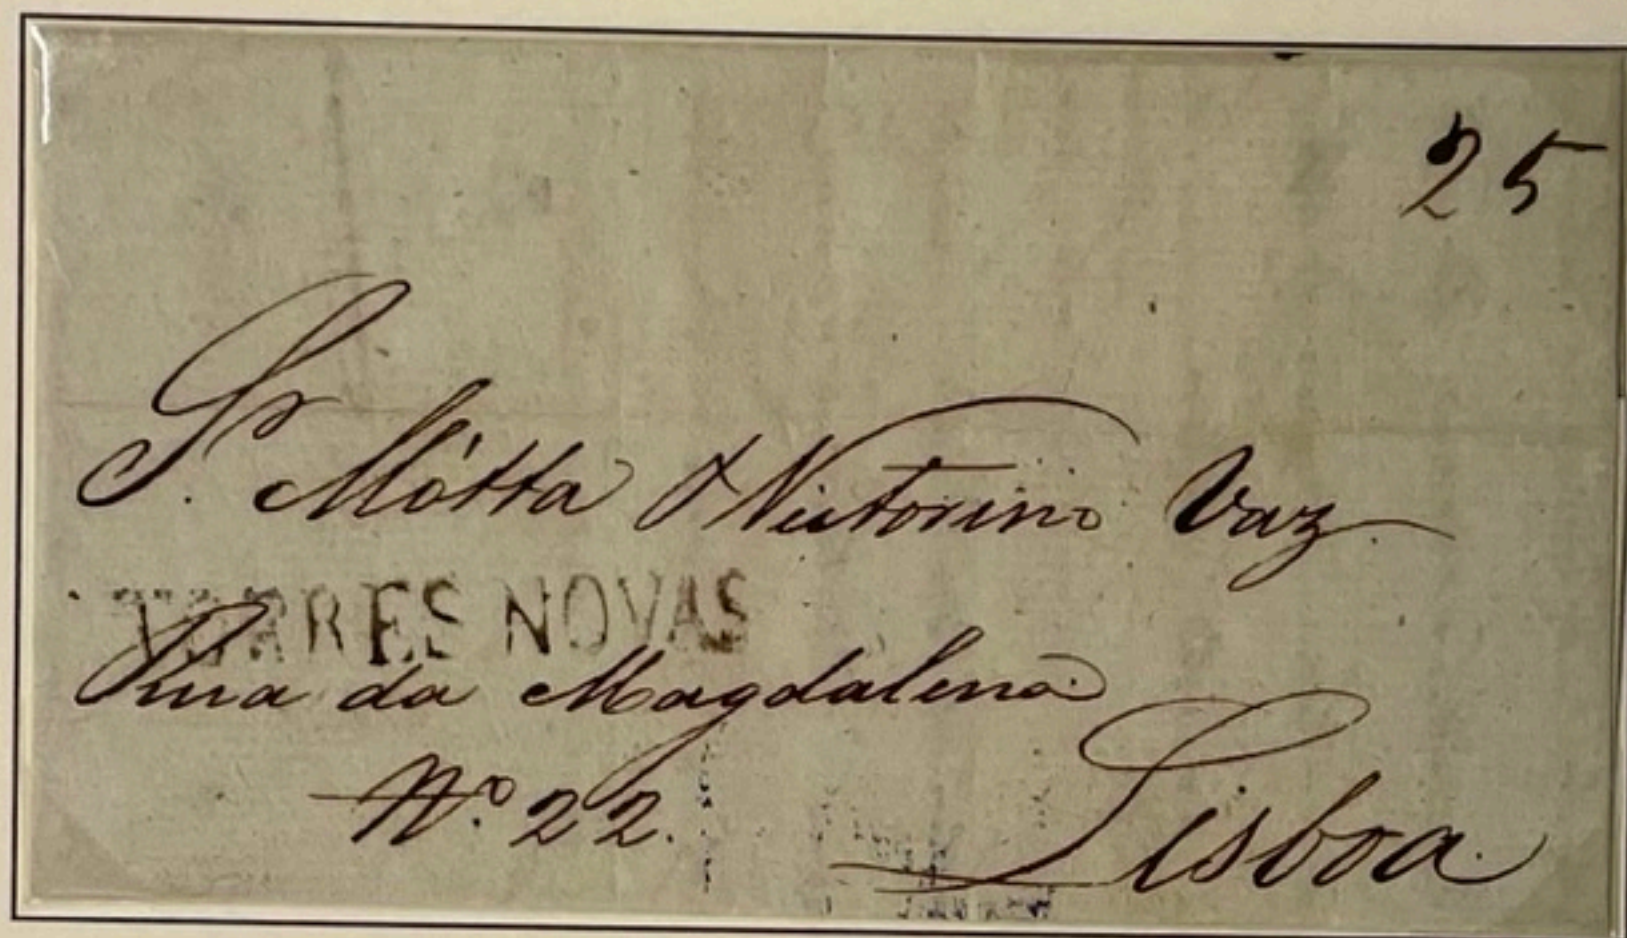 25
Sr. Mótta & Victorino Vaz
TORRES NOVAS
Rua da Magdalena
Nº 22.
Lisboa